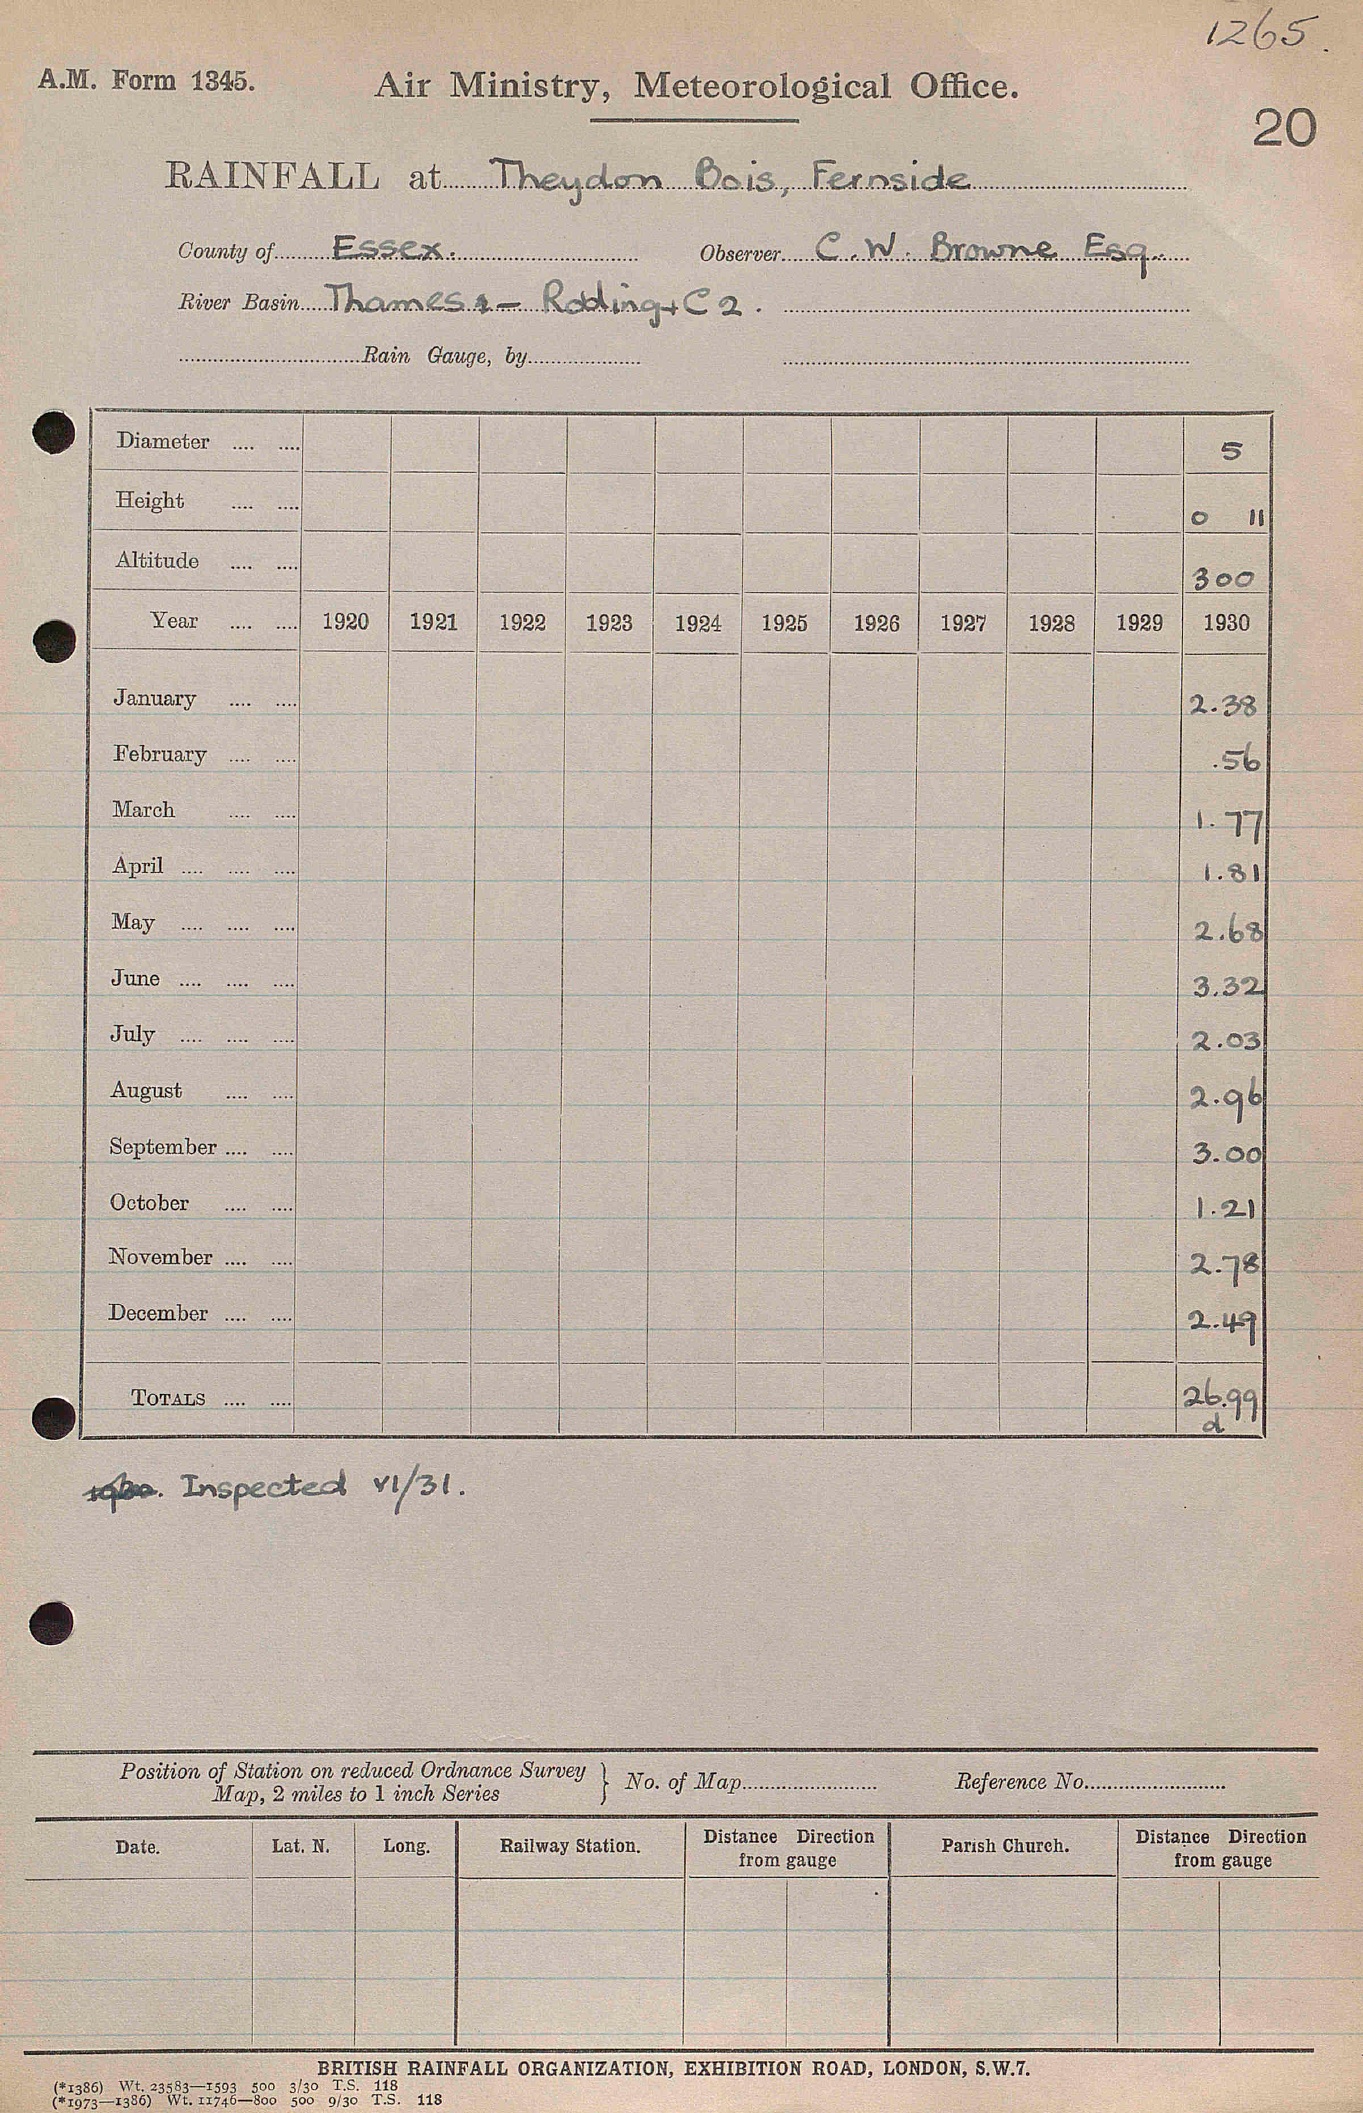 1265.
A.M. Form 1345. Air Ministry, Meteorological Office.
20
RAINFALL at Theydon Bois, Fernside
County of Essex. Observer C. W. Browne Esq.
River Basin Thames - Roding + C 2.
Rain Gauge, by
Diameter .... .... 5
Height .... .... 0 11
Altitude .... .... 300
Year .... .... 1920 1921 1922 1923 1924 1925 1926 1927 1928 1929 1930
January .... .... 2.38
February .... .... .56
March .... .... 1.77
April .... .... .... 1.81
May .... .... .... 2.68
June .... .... .... 3.32
July .... .... .... 2.03
August .... .... 2.96
September .... .... 3.00
October .... .... 1.21
November .... .... 2.78
December .... .... 2.49
TOTALS .... .... 26.99
d
Inspected VI/31.
Position of Station on reduced Ordnance Survey } No. of Map Reference No.
Map, 2 miles to 1 inch Series
Date. Lat. N. Long. Railway Station. Distance Direction Parish Church. Distance Direction
from gauge from gauge
BRITISH RAINFALL ORGANIZATION, EXHIBITION ROAD, LONDON, S.W.7.
(*1386) Wt. 23583—1593 500 3/30 T.S. 118
(*1973—1386) Wt. 11746—800 500 9/30 T.S. 118